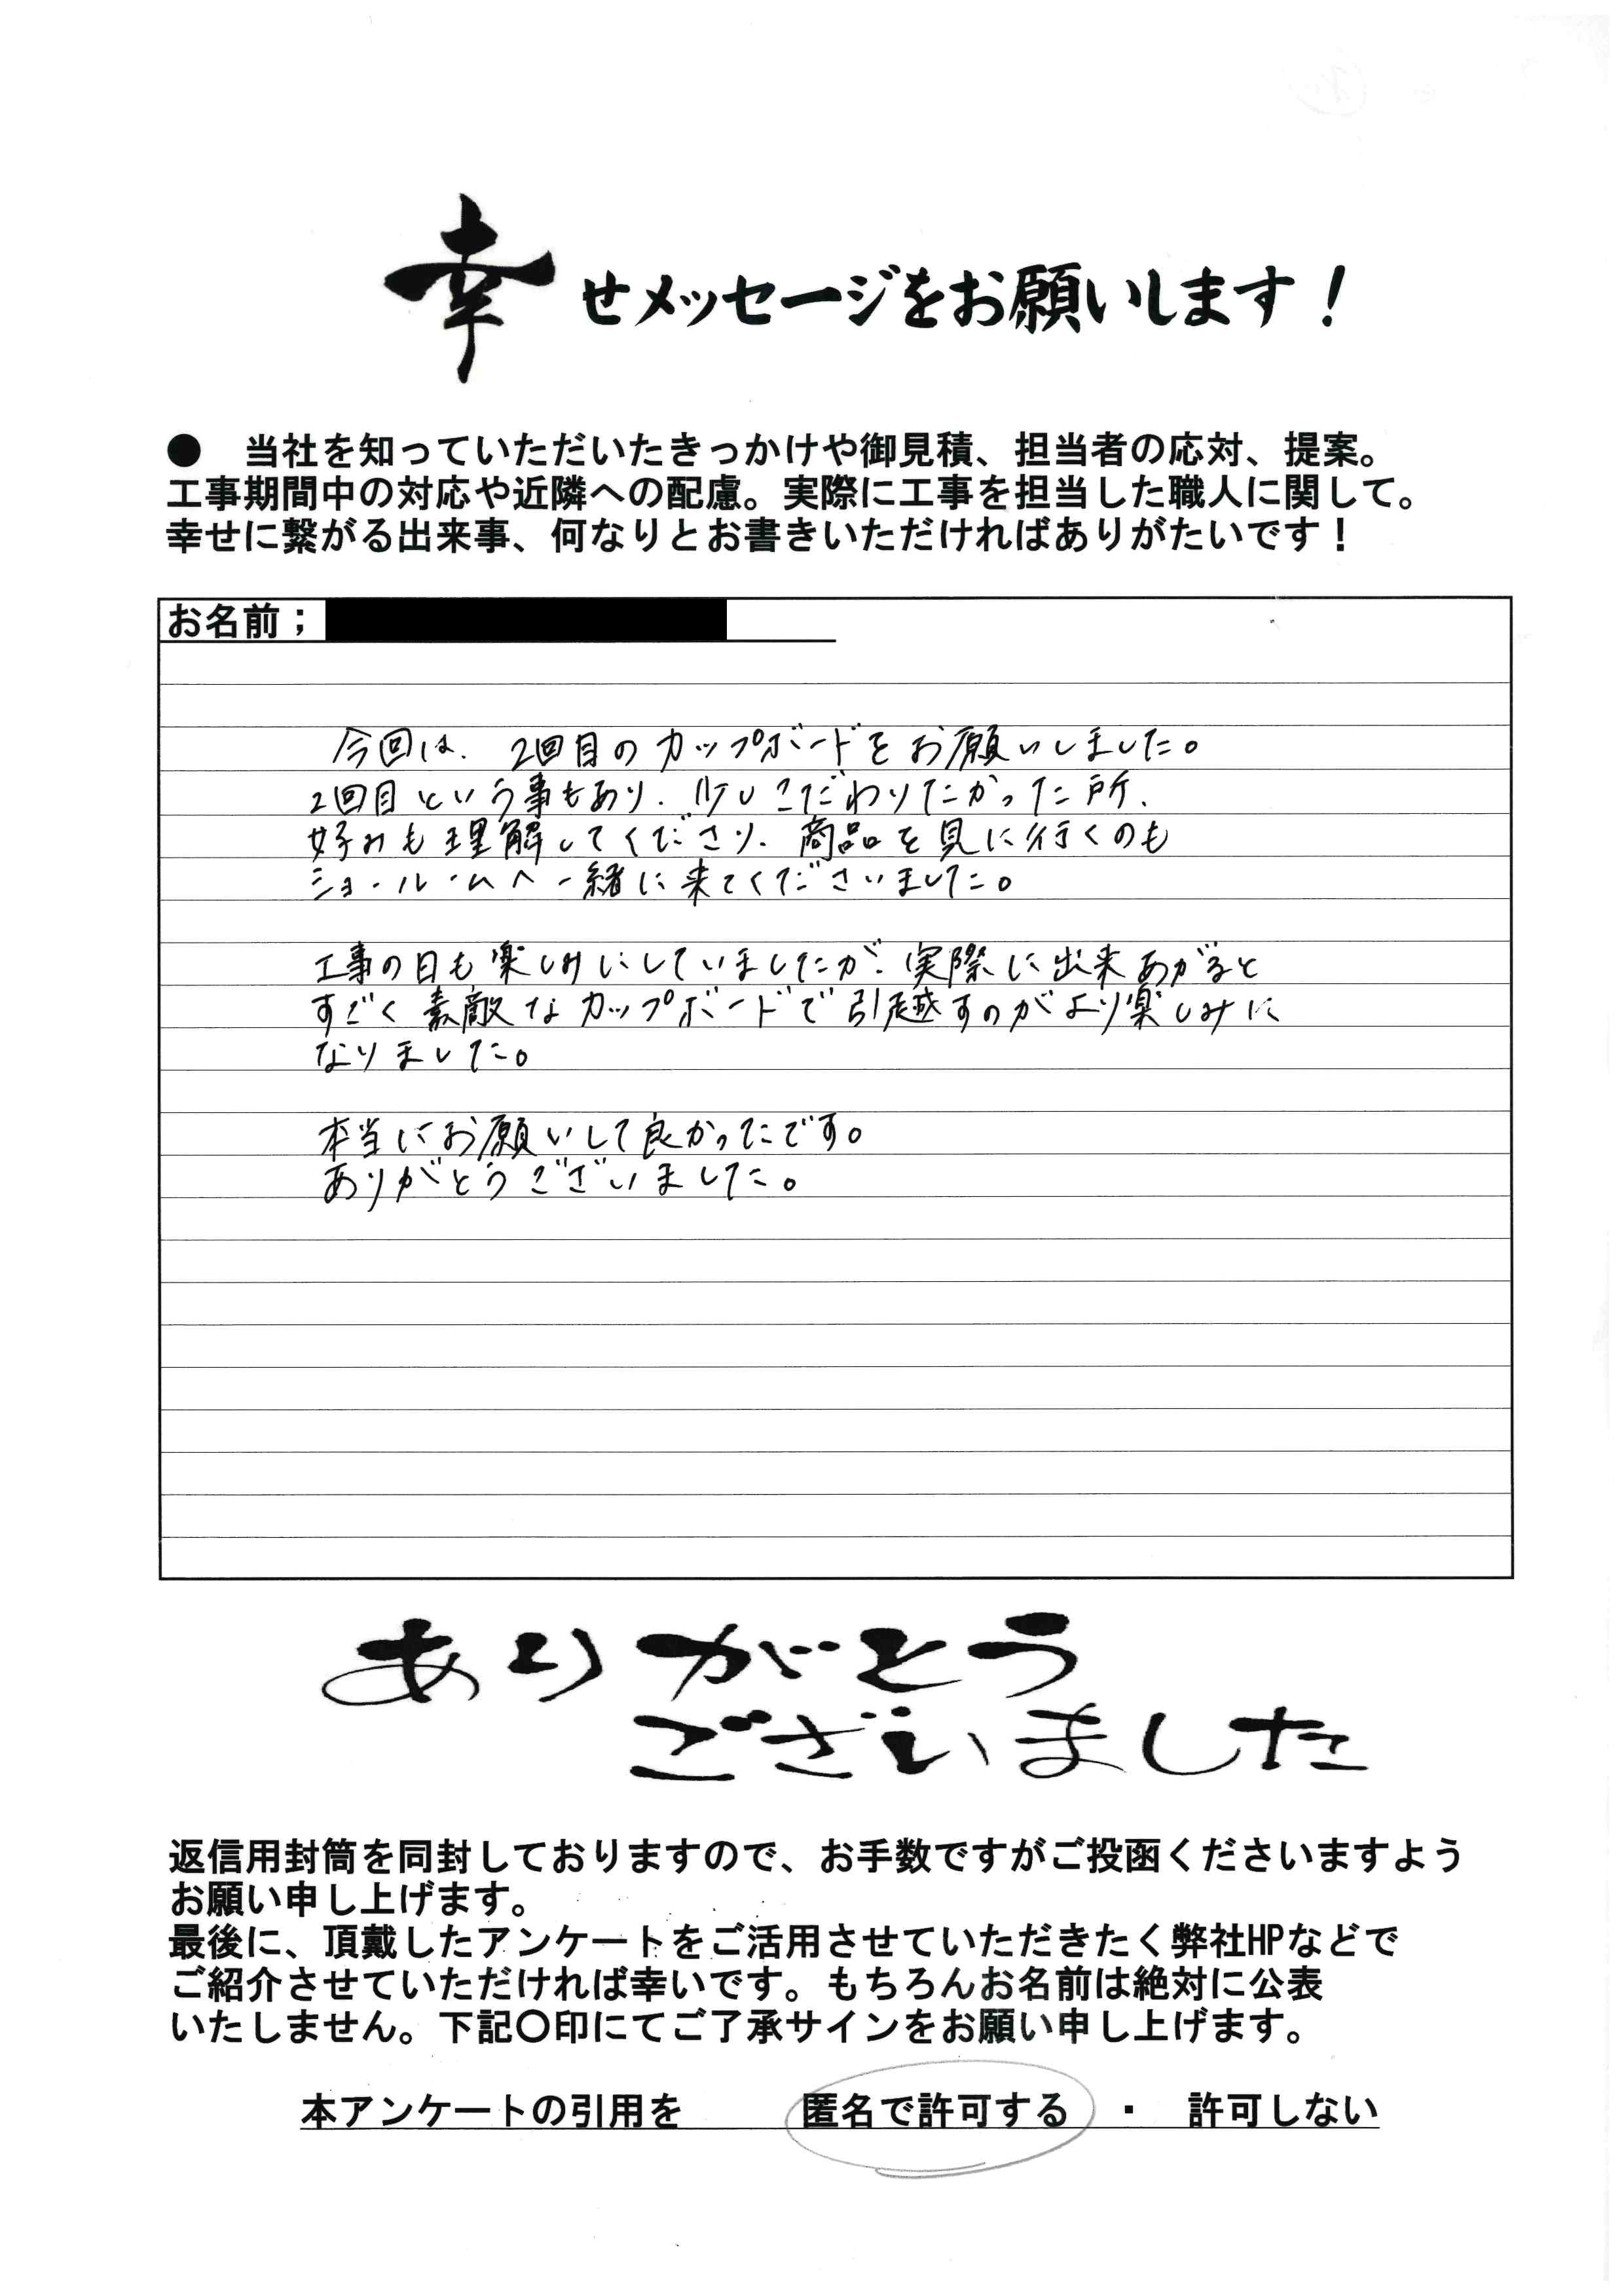 幸せメッセージをお願いします！
● 当社を知っていただいたきっかけや御見積、担当者の応対、提案。
工事期間中の対応や近隣への配慮。実際に工事を担当した職人に関して。
幸せに繋がる出来事、何なりとお書きいただければありがたいです！
お名前；
今回は、2回目のカップボードをお願いしました。
2回目という事もあり、少しこだわりたかった所、
好みも理解してくださり、商品を見に行くのも
ショールームへ一緒に来てくださいました。
工事の日も楽しみにしていましたが、実際に出来あがると
すごく素敵なカップボードで引越すのがより楽しみに
なりました。
本当にお願いして良かったです。
ありがとうございました。
ありがとう
ございました
返信用封筒を同封しておりますので、お手数ですがご投函くださいますよう
お願い申し上げます。
最後に、頂戴したアンケートをご活用させていただきたく弊社HPなどで
ご紹介させていただければ幸いです。もちろんお名前は絶対に公表
いたしません。下記〇印にてご了承サインをお願い申し上げます。
本アンケートの引用を 匿名で許可する ・ 許可しない